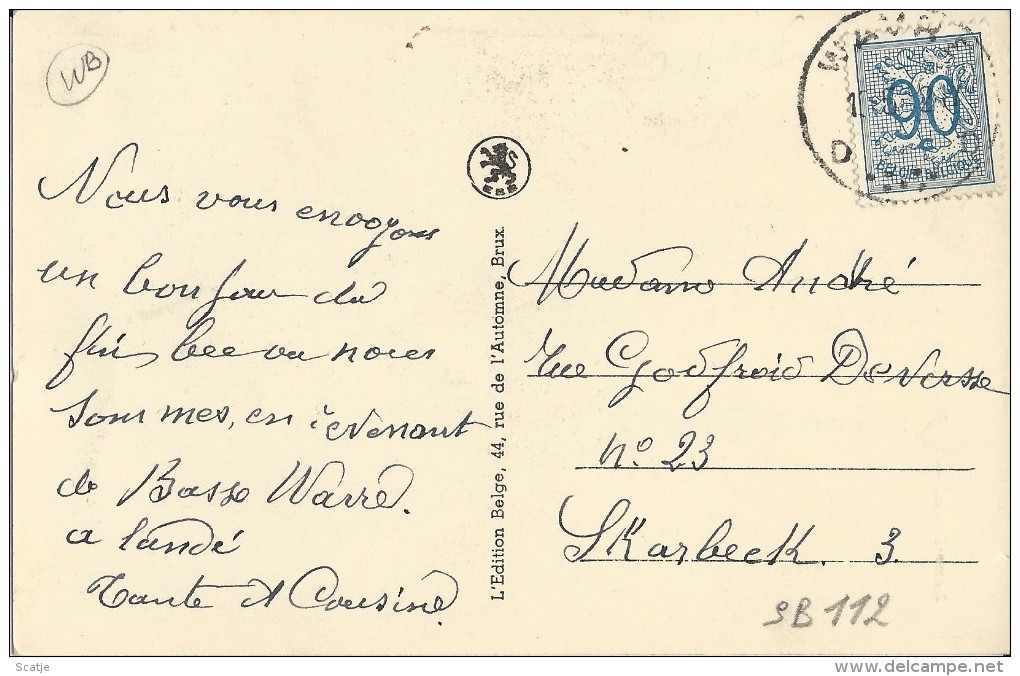 WB
WAVR
90
c
BELGIE-BELGIQUE
D
EBE
Nous vous envoyons
un bonjour du
bee ou nous
sommes, en revenant
de Basse Wavre.
a landé
Tante et Cousine
L'Edition Belge, 44, rue de l'Automne, Brux.
Madame André
Rue Godfroid Devresse
n° 23
Skarbeck. 3.
SB 112
Scatje
www.delcampe.net